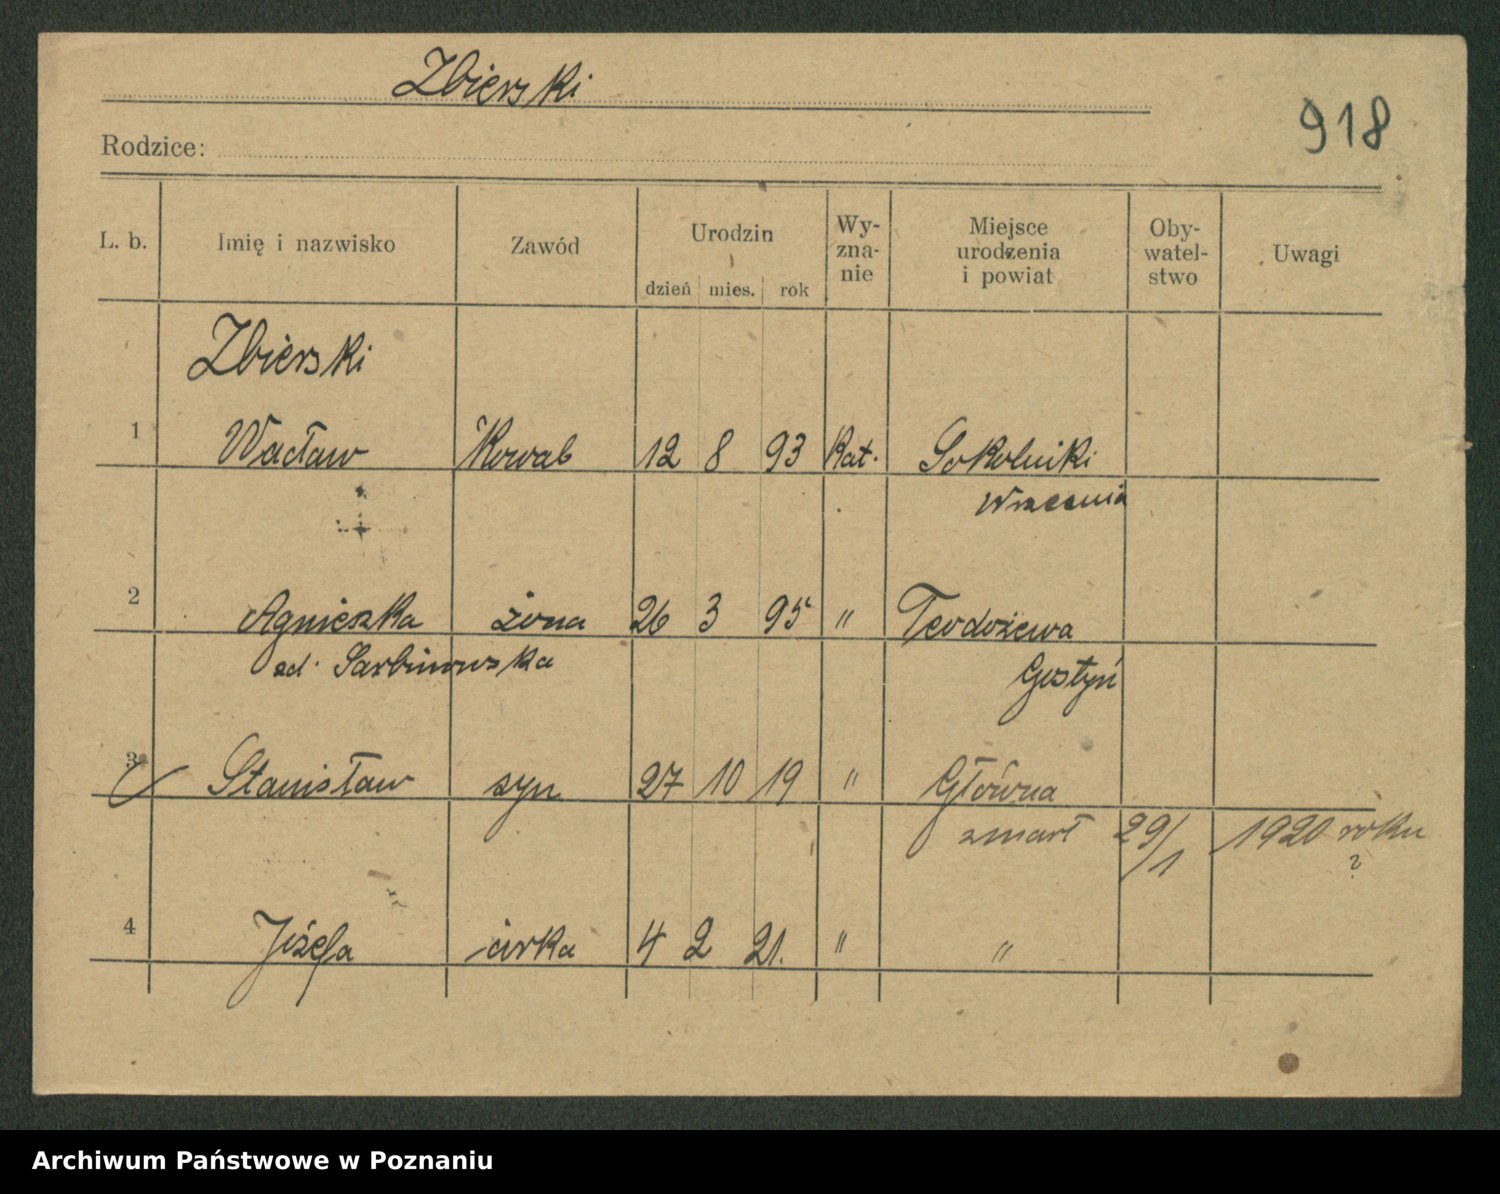 Zbierski
918
Rodzice:
L. b. Imię i nazwisko Zawód Urodzin dzień mies. rok Wy-zna-nie Miejsce urodzenia i powiat Oby-watel-stwo Uwagi
Zbierski
1 Wacław Kowal 12 8 93 Kat. Sokolniki
Września
2 Agnieszka żona 26 3 95 " Teodożewa
Gostyń
3 Stanisław syn 27 10 19 " Główna
zmarł 29/1 1920 roku
?
4 Józefa córka 4 2 21. " "
Archiwum Państwowe w Poznaniu